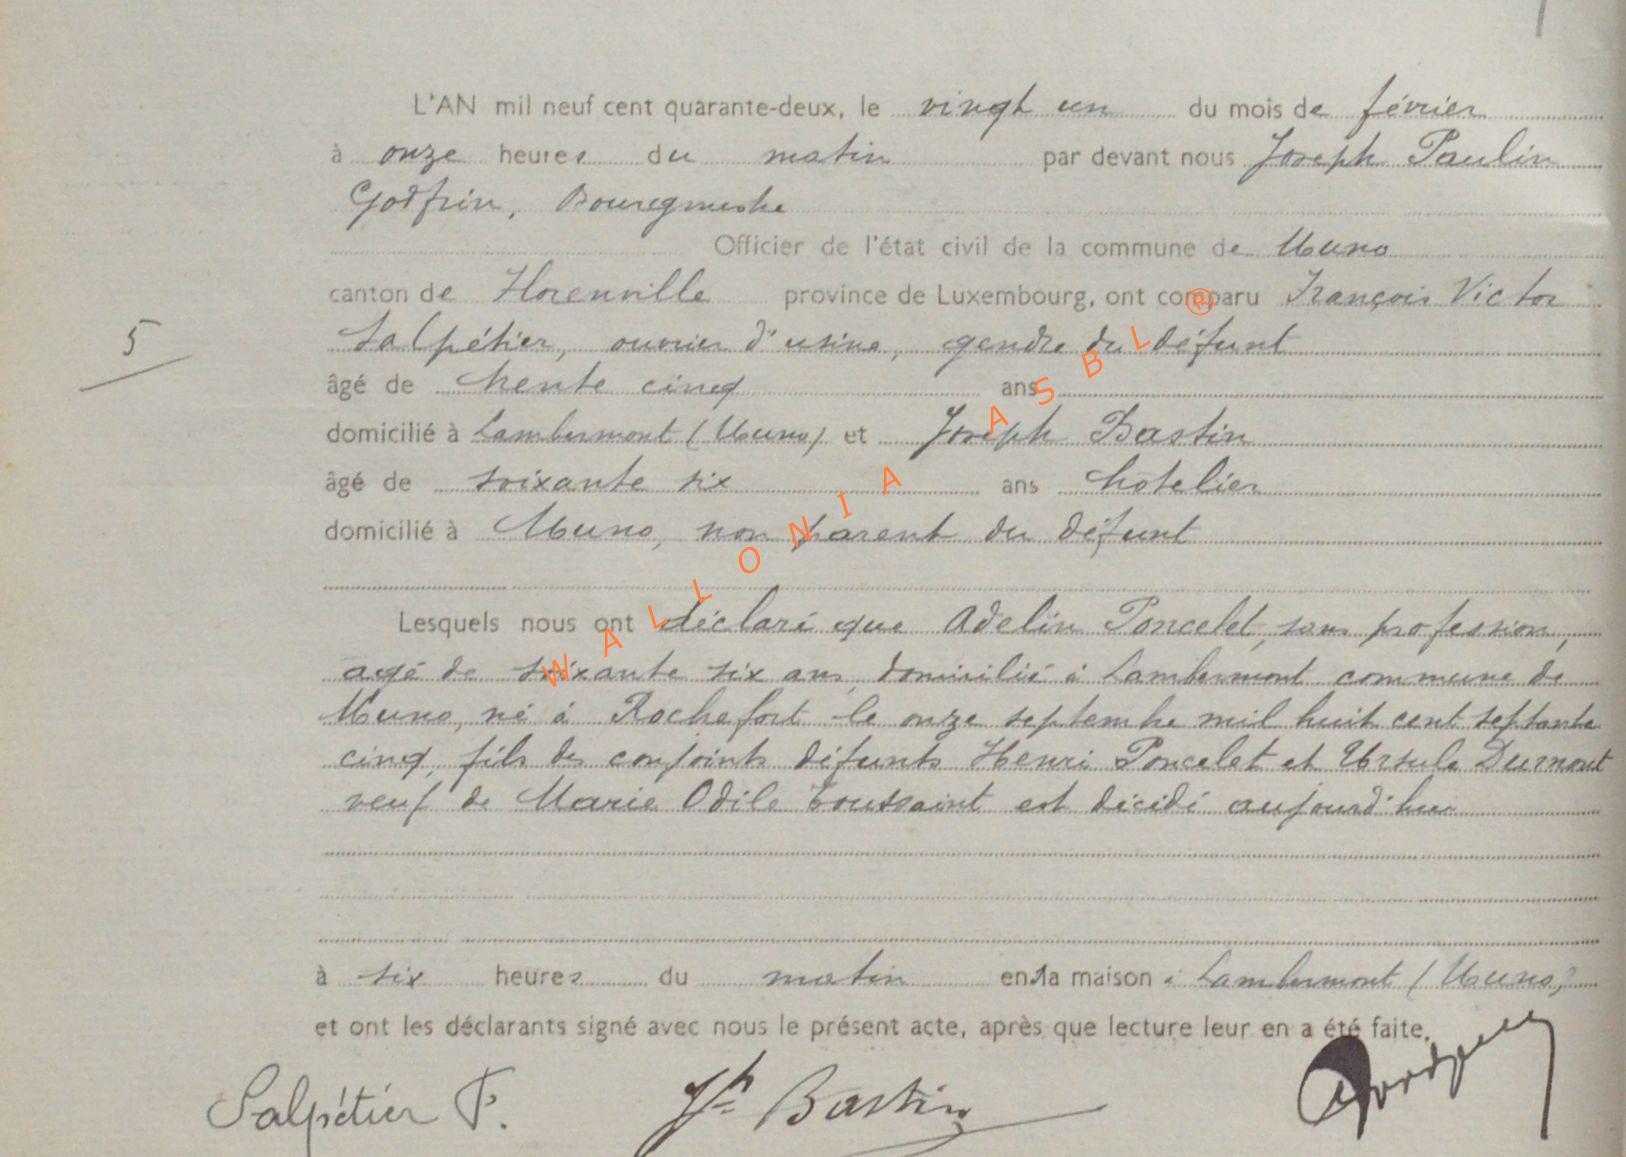 L'AN mil neuf cent quarante-deux, le vingt un du mois de février
à onze heures du matin par devant nous Joseph Paulin
Godfrin, Bourgmestre
Officier de l'état civil de la commune de Muno
canton de Florenville province de Luxembourg, ont comparu François Victor
Salpétier, ouvrier d'usine, gendre du défunt
5
âgé de trente cinq ans
domicilié à Lambermont (Muno) et Joseph Bastin
âgé de soixante six ans hôtelier
domicilié à Muno, non parent du défunt
Lesquels nous ont déclaré que Adelin Poncelet, sans profession,
agé de soixante six ans, domicilié à Lambermont commune de
Muno, né à Rochefort le onze septembre mil huit cent septante
cinq, fils des conjoints défunts Henri Poncelet et Ursule Dumont
veuf de Marie Odile Toussaint est décédé aujourd'hui
à six heures du matin en sa maison à Lambermont (Muno)
et ont les déclarants signé avec nous le présent acte, après que lecture leur en a été faite.
Salpétier F. Jh Bastin
WALLONIA ASBL ®